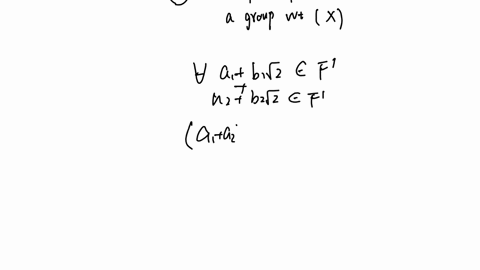 a group wt (X)
∀ a₁+b₁√2 ∈ F'
a₂+b₂√2 ∈ F'
(a₁+a₂